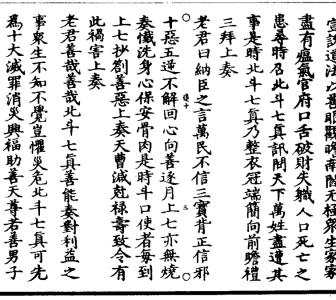 盡有瘟氣官府口舌破財失職人口死亡之
患尋時乃北斗七眞訊問天下萬姓盡遭其
事是時北斗七眞乃整衣冠端簡向前瞻禮
三拜上奏
老君曰納臣之言萬民不信三寶背正信邪
十惡五逆不解回心向善逐月上七亦無燒
奏懺洗身心保安骨肉是時斗口使者每到
上七抄劄善惡上奏天曹減尅祿壽致令有
此禍害上奏
老君善哉善哉北斗七眞善能奏對利益之
事衆生不知不覺豈懼災危北斗七眞可先
爲十大滅罪消災興福助善天尊若善男子